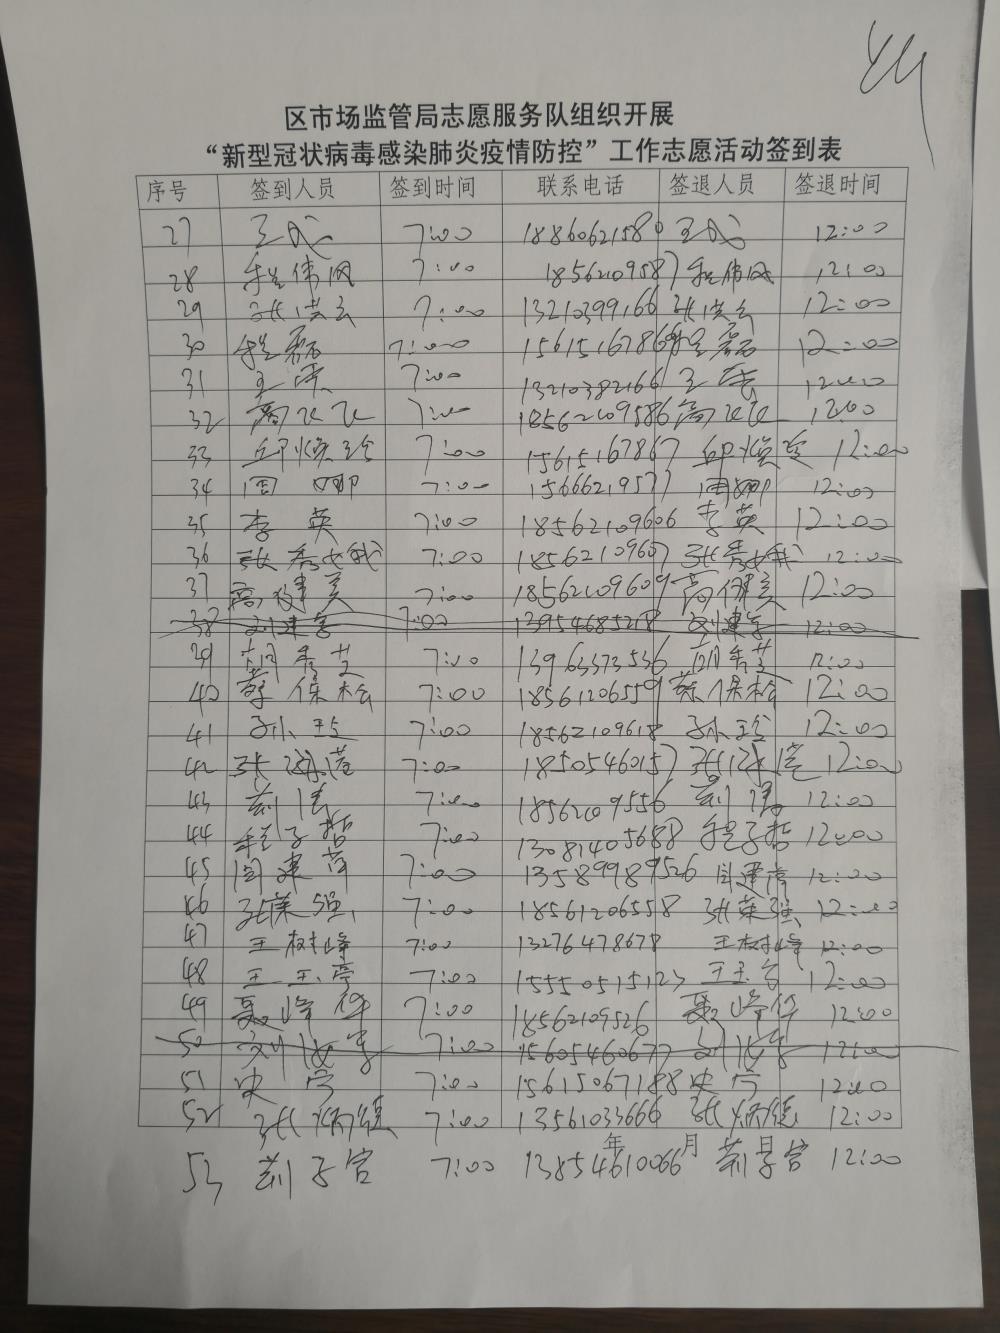 区市场监管局志愿服务队组织开展
“新型冠状病毒感染肺炎疫情防控”工作志愿活动签到表
序号 签到人员 签到时间 联系电话 签退人员 签退时间
27 王成 7:00 18860621580 王成 12:00
28 程伟风 7:00 18562109587 程伟风 12:00
29 张洪云 7:00 13210399166 张洪云 12:00
30 程磊 7:00 程磊 12:00
31 7:00 13210382166 12:00
32 高飞飞 7:00 18562109586 高飞飞 12:00
33 邱焕玲 7:00 15615167867 12:00
34 周娜 7:00 15666219577 周娜 12:00
35 李英 7:00 18562109606 李英 12:00
36 张秀娥 7:00 18562109607 张秀娥 12:00
37 7:00 18562109609 12:00
38 7:00 13954685218 12:00
39 胡秀芝 7:00 13963373536 胡秀芝 12:00
40 7:00 18561206559 12:00
41 7:00 18562109618 12:00
42 7:00 18505460157 12:00
43 7:00 18562109556 12:00
44 程子哲 7:00 13081405688 程子哲 12:00
45 7:00 13589989526 12:00
46 张荣强 7:00 18561206558 张荣强 12:00
47 王树峰 7:00 13276478678 王树峰 12:00
48 7:00 15550515123 12:00
49 聂峰华 7:00 18562109526 聂峰华 12:00
50 7:00 15605460677 12:00
51 史宁 7:00 15615067188 史宁 12:00
52 张炳德 7:00 13561033666 张炳德 12:00
年 月 日
53 7:00 13854610066 12:00